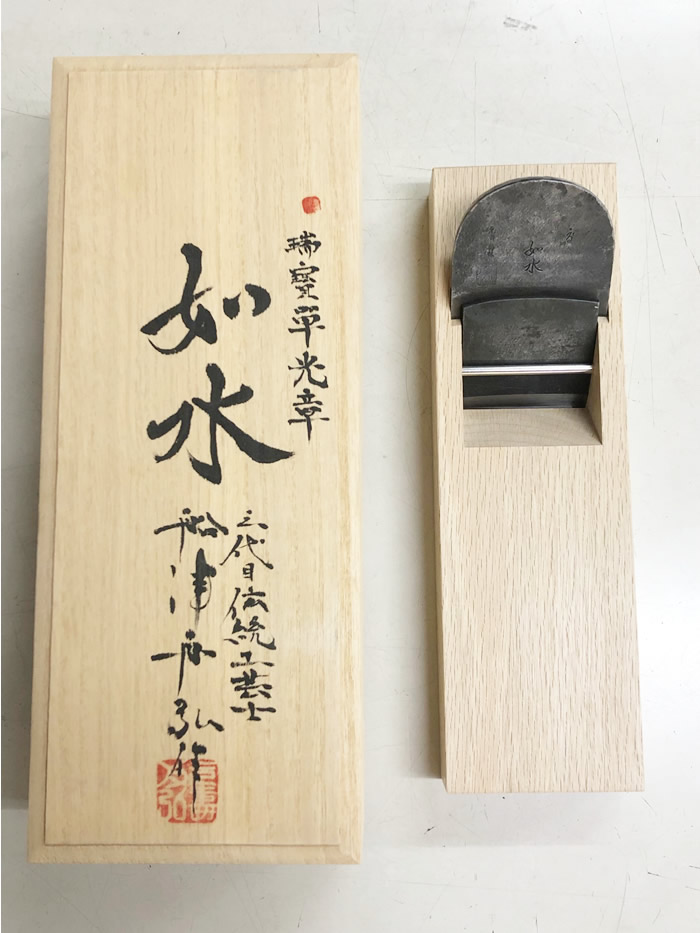 瑞寶単光章
如水
三代目伝統工芸士
船津舟弘作
如水